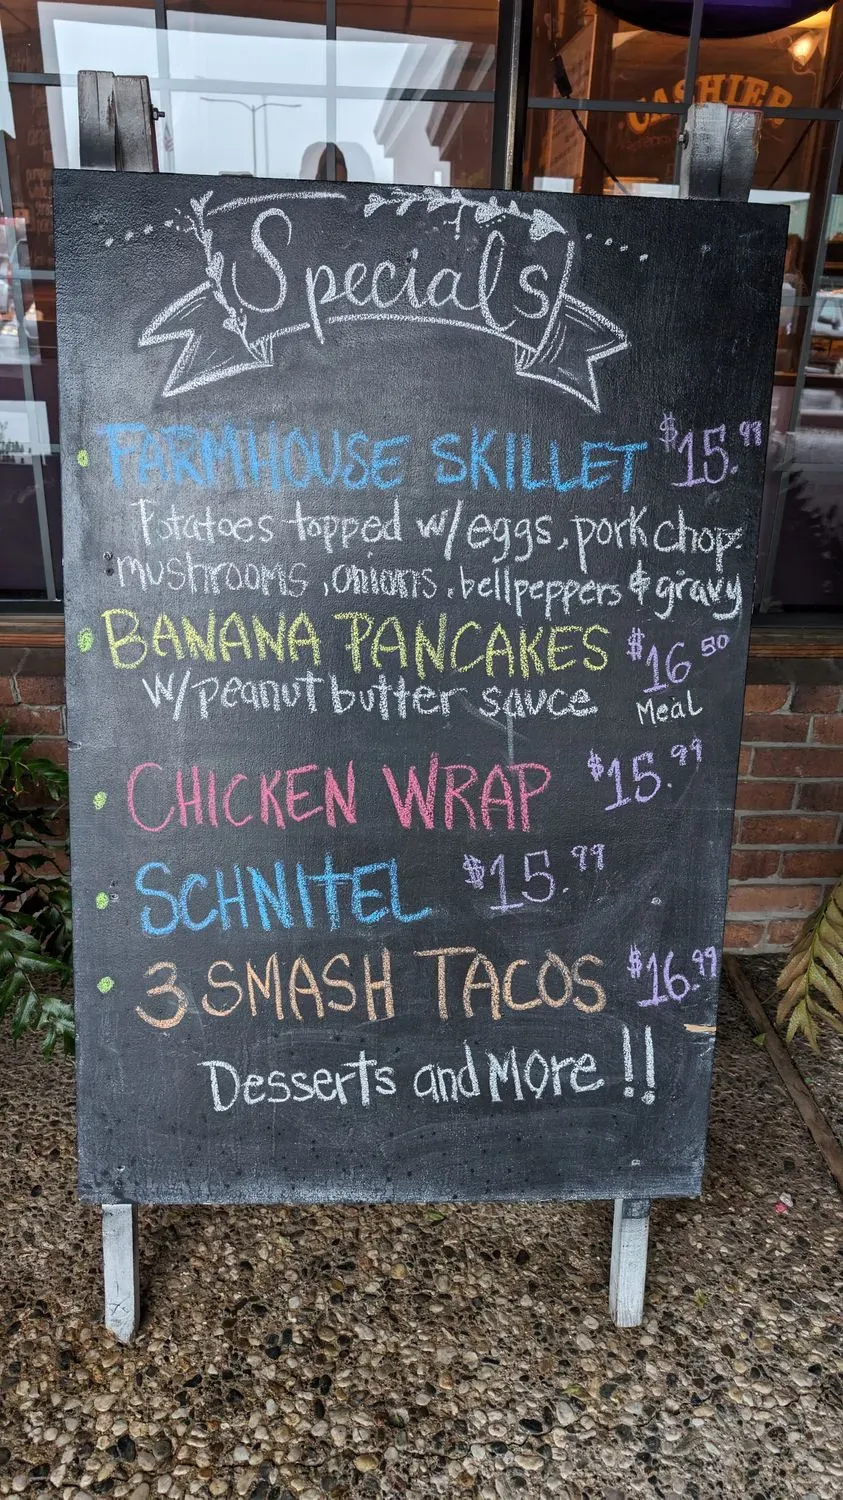 CASHIER
Specials
FARMHOUSE SKILLET $15.99
Potatoes topped w/ eggs, pork chop,
mushrooms, onions, bellpeppers & gravy
BANANA PANCAKES $16.50
w/ peanut butter sauce Meal
CHICKEN WRAP $15.99
SCHNITEL $15.99
3 SMASH TACOS $16.99
Desserts and More !!